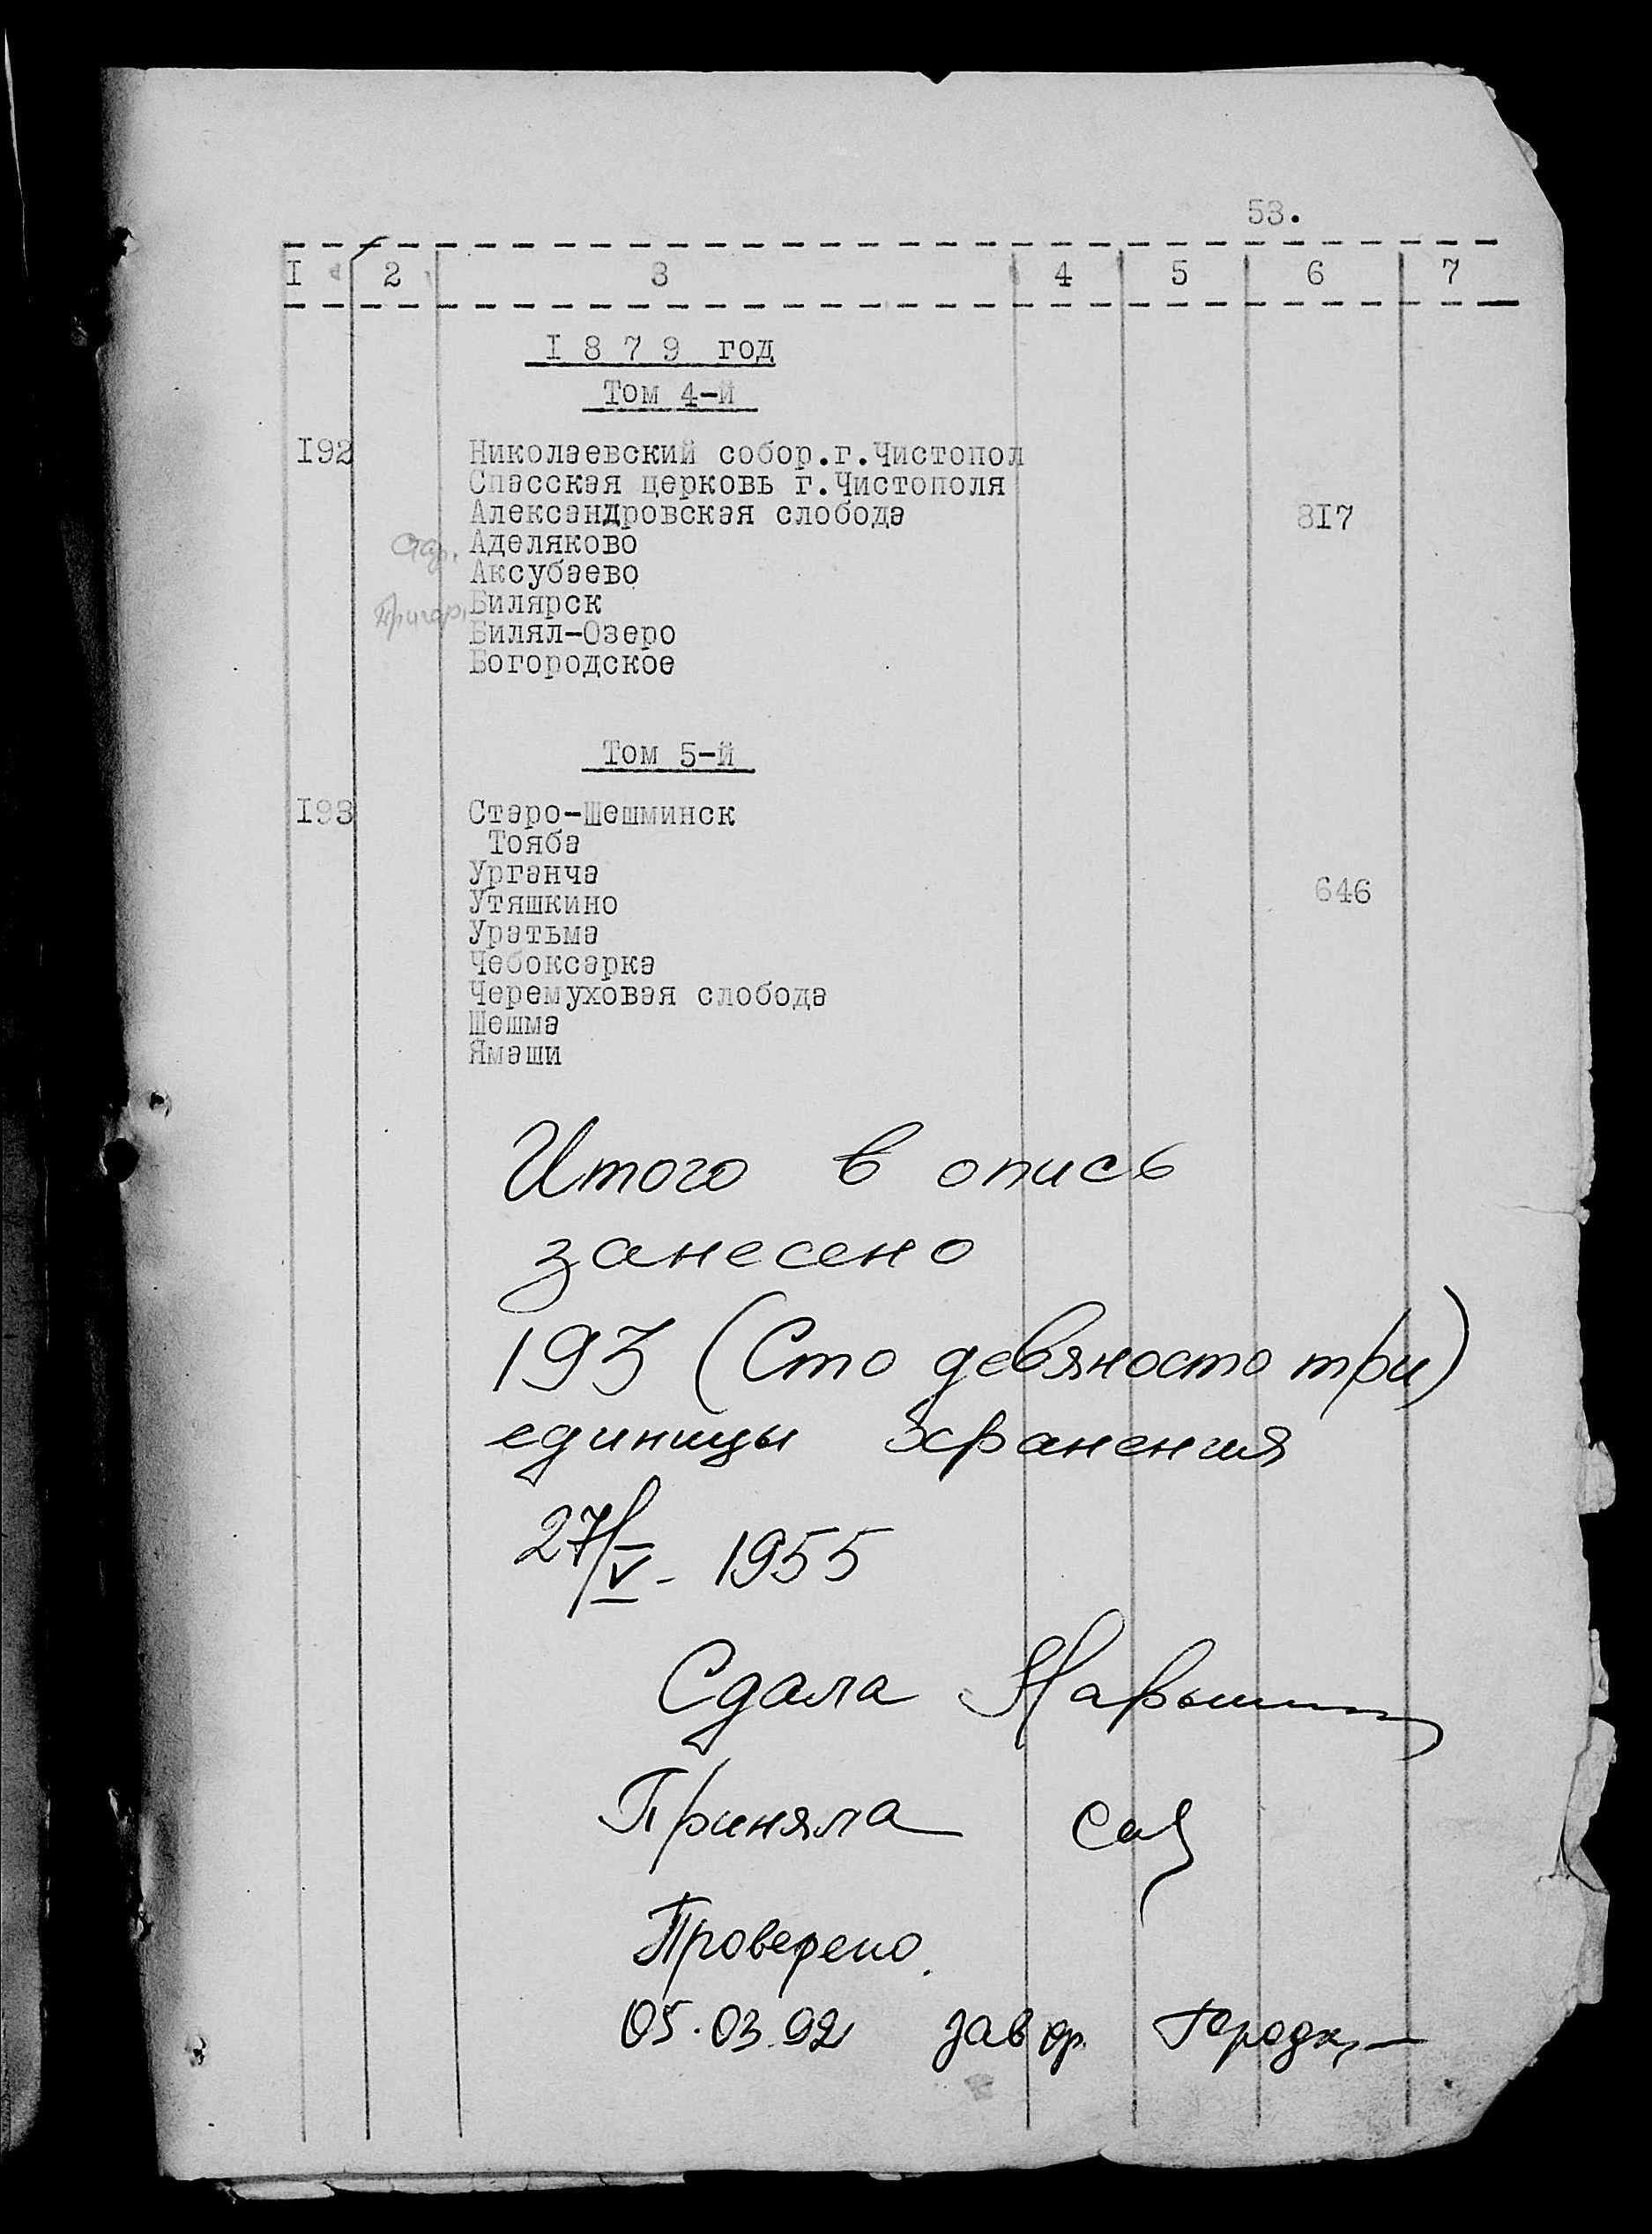 53.
I 2 3 4 5 6 7
I 8 7 9 год
Том 4-й
I92 Николаевский собор.г.Чистопол
Спасская церковь г.Чистополя
Александровская слобода 8I7
Стар. Аделяково
Аксубаево
Пригор. Билярск
Билял-Озеро
Богородское
Том 5-й
I93 Старо-Шешминск
Тояба
Урганча
646
Утяшкино
Уратьма
Чебоксарка
Черемуховая слобода
Шешма
Ямаши
Итого в опись
занесено
193 (Сто девяносто три)
единицы хранения
27/V - 1955
Сдала
Приняла
Проверено.
05.03.92 зав